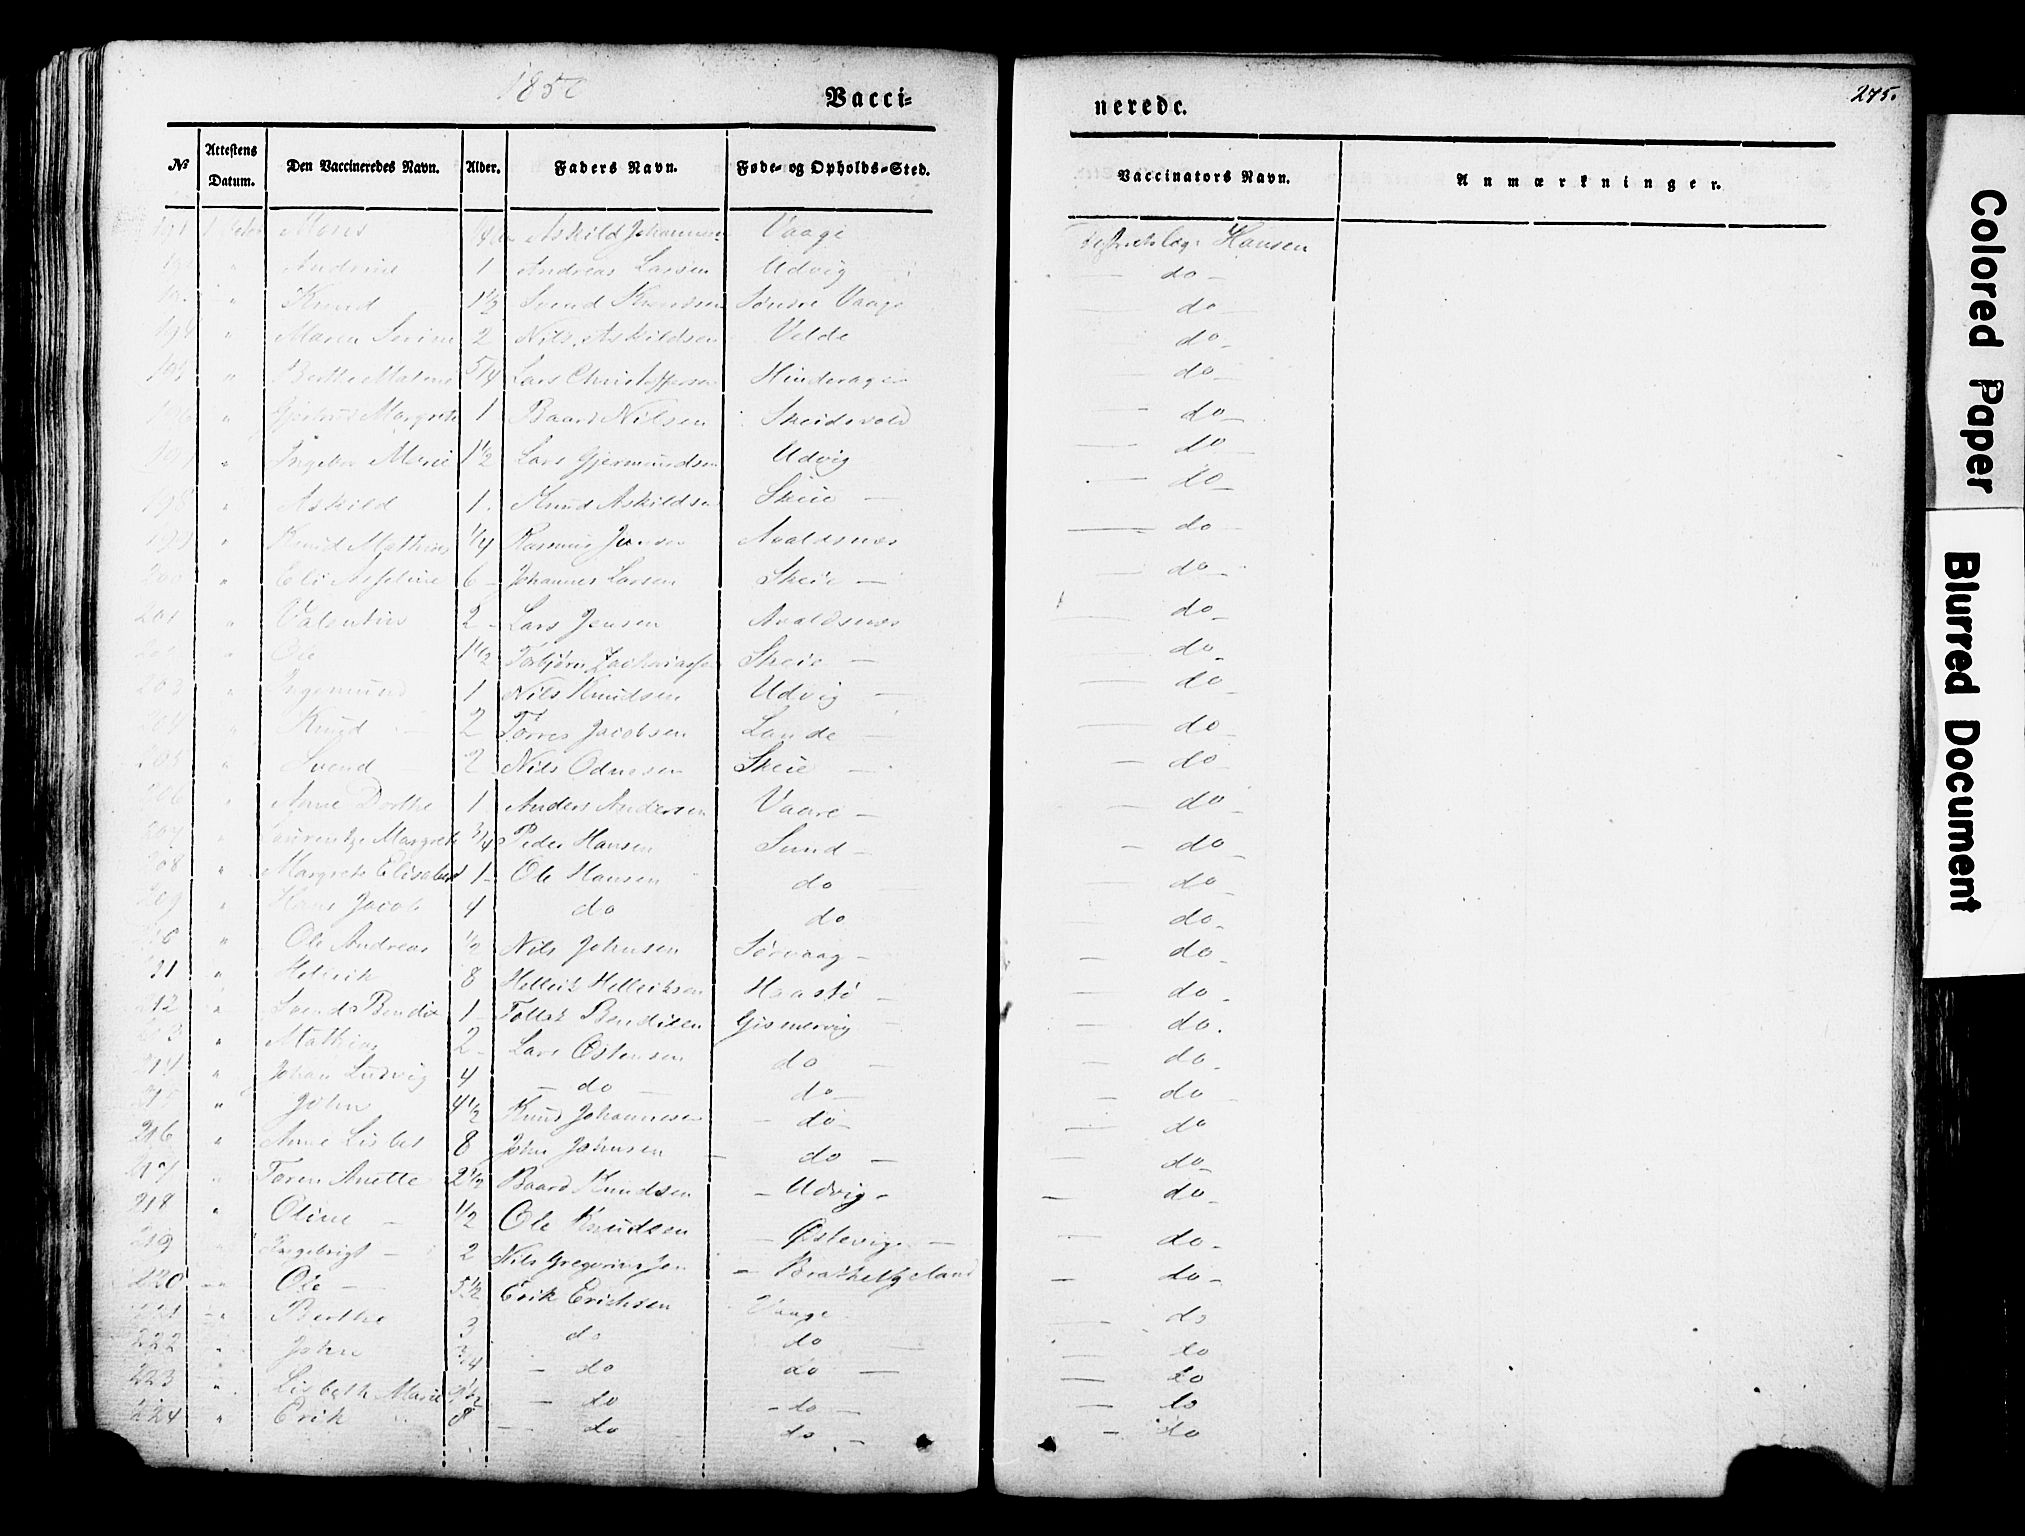 1850
Vacci=
nerede.
275.
No Attestens Datum. Den Vaccineredes Navn. Alder. Faders Navn. Føde- og Opholds-Sted. Vaccinators Navn. Anmærkninger.
191 Askild Johannesen Vaage Hansen
" Andrine 1 Andreas Larsen Udvig do
" Knud 1½ Svend Knudsen Søndre Vaage do
194 " Maren Serine 2 Nils Askildsen Velde do
195 " Berthe Malene 5/4 Lars Christoffersen Hinderager do
196 " Margrete 1 Baard Nilsen Skeidsvold do
197 " Marie 1½ Lars Gjermundsen Udvig do
198 " Askild 1 Knud Askildsen Skeie do
199 " Knud Mathias ¼ Rasmus Jensen Avaldsnes do
200 " Eli 6 Johannes Larsen Skeie do
201 " Valentin 2 Lars Jensen Avaldsnes do
202 " Ole 1½ Torbjørn Zachariassen Skeie do
203 " Ingemund 1 Nils Knudsen Udvig do
204 " Knud 2 Torres Jacobsen Lande do
205 " Svend 2 Nils Odnesen Skeie do
206 " Anne Dorthe 1 Anders Andersen Vaare do
207 " Laurentze Margrete ¾ Peder Hansen Sund do
208 " Margrete Elisabet 1 Ole Hansen do do
209 " Hans Jacob 4 do do do
210 " Ole Andreas ½ Nils Johnsen Sørvaag do
211 " Hellrik 8 Hellrik Hellriksen Haastø do
212 " Svend Bendix 1 Tollak Bendixen Gismervig do
213 " Mathias 2 Lars Østensen do do
214 " Johan Ludvig 4 do do do
215 " John 4½ Knud Johannesen do do
216 " Anne Lisbet 8 John Johnsen do do
217 " Toren Anette 2½ Baard Knudsen Udvig do
218 " Oline ½ Ole Knudsen Østevig do
219 " Ingebrigt 2 Nils Gregoriussen Brathelgeland do
220 " Ole 5½ Erik Erichsen Vaage do
221 " Berthe 3 do do do
222 " John ¾ do do do
223 " Lisbeth Marie do do do
224 " Erik 8 do do do
Colored Paper
Blurred Document